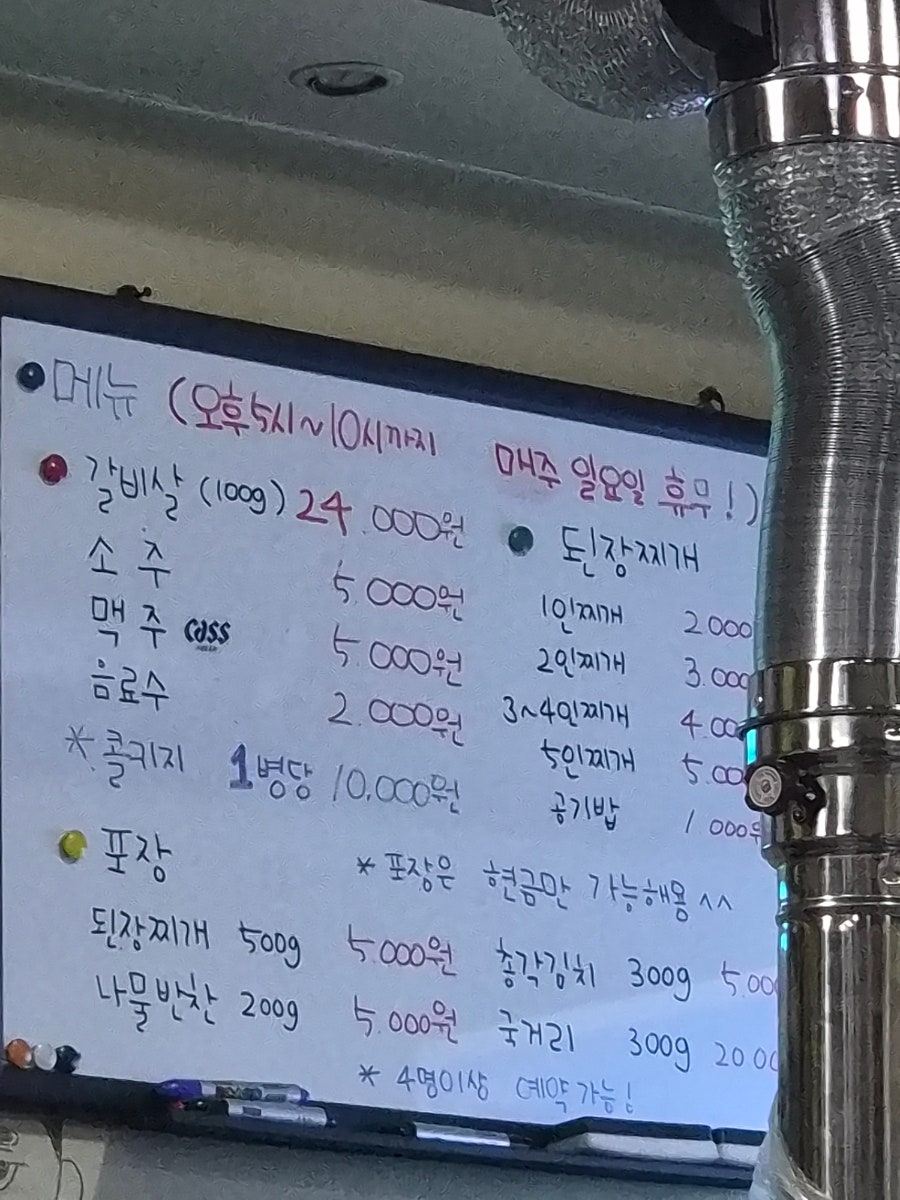 메뉴 (오후5시~10시까지 매주 일요일 휴무!)
갈비살 (100g) 24.000원
소주 5.000원
맥주 cass 5.000원
음료수 2.000원
* 콜키지 1병당 10,000원
된장찌개
1인찌개 2000
2인찌개 3.000
3~4인찌개 4.00
5인찌개 5.00
공기밥 1000원
포장
* 포장은 현금만 가능해용 ^^
된장찌개 500g 5.000원 총각김치 300g 5.000
나물반찬 200g 5.000원 국거리 300g 20.00
* 4명이상 예약가능!